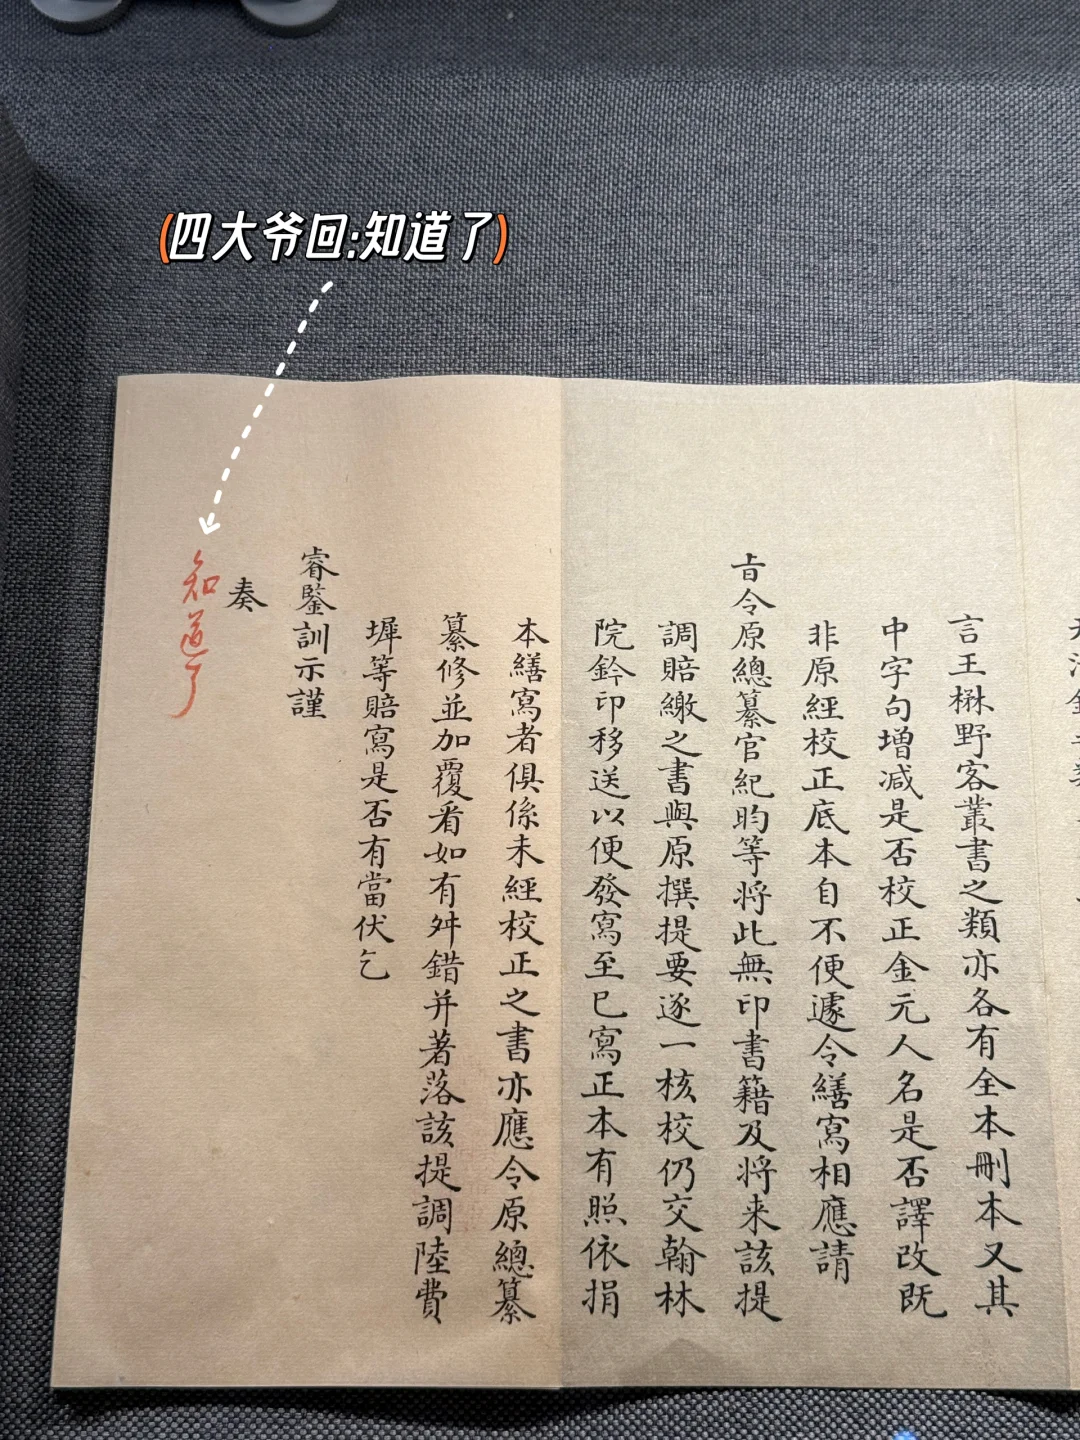 (四大爷回:知道了)
言王楙野客叢書之類亦各有全本刪本又其
中字句增減是否校正金元人名是否譯改既
非原經校正底本自不便遽令繕寫相應請
旨令原總纂官紀昀等將此無印書籍及將来該提
調賠繳之書與原撰提要逐一核校仍交翰林
院鈐印移送以便發寫至已寫正本有照依捐
本繕寫者俱係未經校正之書亦應令原總纂
纂修並加覆看如有舛錯并著落該提調陸費
墀等賠寫是否有當伏乞
睿鑒訓示謹
奏
知道了